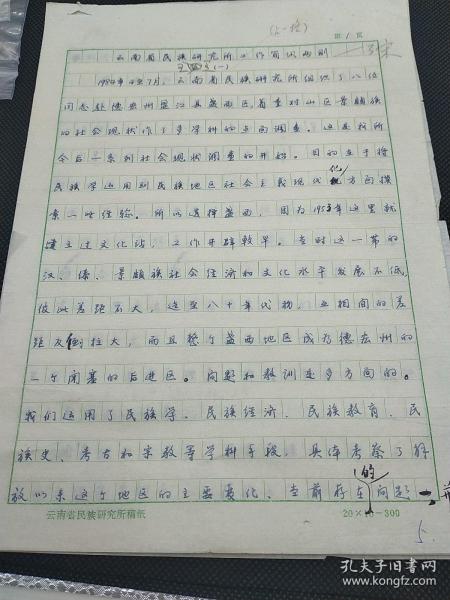 (上一格)
第1页
云南省民族研究所工作简讯两则
(一)
1984年4至7月,云南省民族研究所组织了八位
同志赴德宏州盈江县盏西区,着重对山区景颇族
的社会现状作了多学科的点面调查。这是我所
今后一系列社会现状调查的开始。目的在于将
民族学运用到民族地区社会主义现代化方面摸
索一些经验。所以选择盏西,因为1953年这里就
建立过文化站,工作开辟较早。当时这一带的
汉、傣、景颇族社会经济和文化水平发展不低,
彼此差距不大,迨至八十年代初,互相间的差
距反倒拉大,而且整个盏西地区成为德宏州的
一个闭塞的后进区。问题和教训是多方面的。
我们运用了民族学、民族经济、民族教育、民
族史、考古和宗教等学科手段,具体考察了解
放以来这个地区的主要变化、当前存在的问题
云南省民族研究所稿纸
20×15=300
5.
孔夫子旧书网